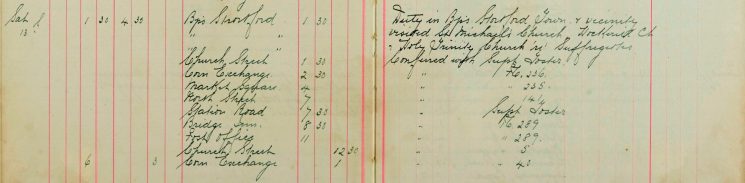 Sat 1 30 4 30 Bps Stortford 1 30 Duty in Bps Stortford Town & vicinity
13 " " visited St Michaels Church, Hockerill Ch
" & Holy Trinity Church re Suffragettes
Church Street 1 30 Conferred with Supt Foster,
Corn Exchange 2 30 " PC. 236.
Market Square 4 " " 235.
North Street 7 " " 14
Station Road 7 30 " Supt Foster
Bridge Inn. 8 30 " PC. 289
Post Office 11 " " 289.
Church Street 12 30 " " 5
6 3 Corn Exchange 1 " " 40